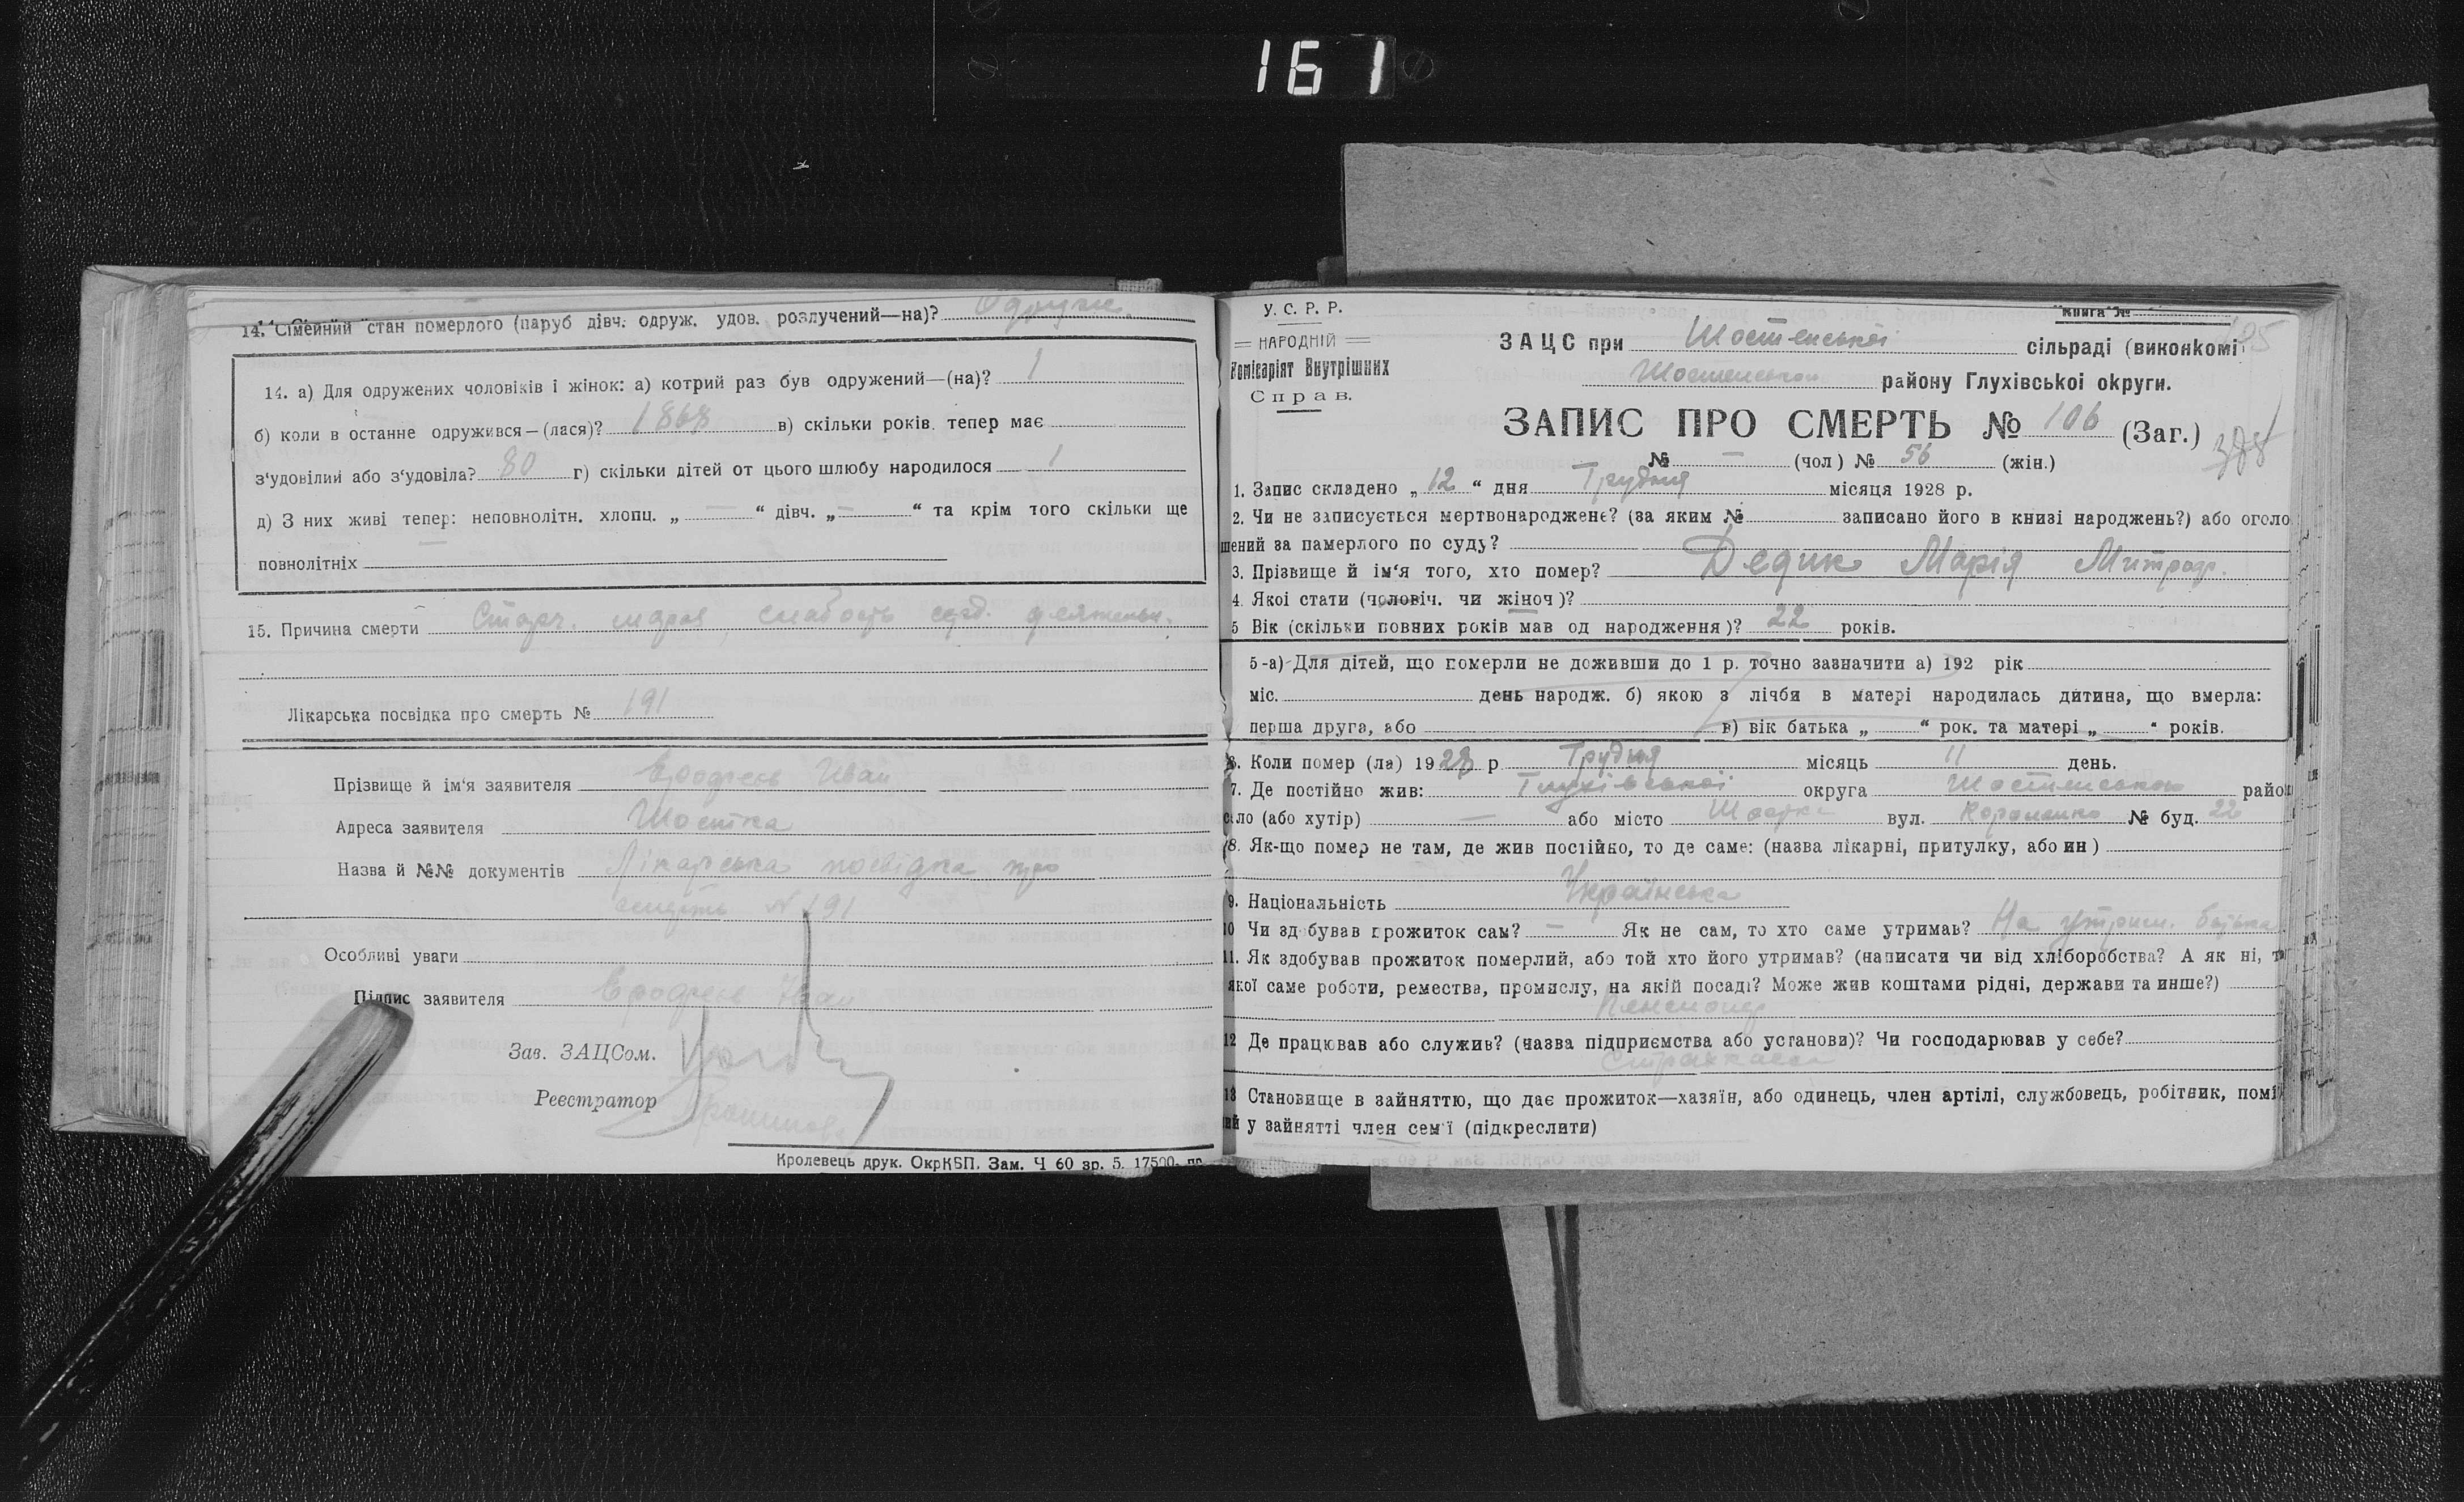 161
14. Сімейний стан померлого (паруб дівч. одруж. удов. розлучений—на)? Одруж.
14. а) Для одружених чоловіків і жінок: а) котрий раз був одружений—(на)? 1
б) коли в останнє одружився—(лася)? 1868 в) скільки років тепер має
з'удовілий або з'удовіла? 80 г) скільки дітей от цього шлюбу народилося 1
д) З них живі тепер: неповнолітн. хлопц. „ — “ дівч. „ — “ та крім того скільки ще
повнолітніх —
15. Причина смерти Старч. слабость серд.
Лікарська посвідка про смерть № 191
Прізвище й ім'я заявителя Иван
Адреса заявителя Шостка
Назва й №№ документів Лікарська посвідка про
смерть № 191
Особливі уваги
Підпис заявителя Иван
Зав. ЗАЦСом.
Реєстратор
Кролевець друк. ОкрКВП. Зам. Ч 60 зр. 5. 17500. пр
У. С. Р. Р.
НАРОДНІЙ
Комісаріят Внутрішних
Справ.
Книга №
105
ЗАЦС при Шостенської сільраді (виконкомі
Шостенського району Глухівської округи.
ЗАПИС ПРО СМЕРТЬ № 106 (Заг.)
№ — (чол) № 56 (жін.)
1. Запис складено „ 12 “ дня Грудня місяця 1928 р.
2. Чи не записується мертвонароджене? (за яким № записано його в книзі народжень?) або оголо
шений за памерлого по суду?
3. Прізвище й ім'я того, хто помер? Дедик Марія Митроф.
4. Якої стати (чоловіч. чи жіноч)?
5 Вік (скільки повних років мав од народження)? 22 років.
5-а) Для дітей, що померли не доживши до 1 р. точно зазначити а) 192 рік
міс. день народж. б) якою з лічби в матері народилась дитина, що вмерла:
перша друга, або в) вік батька „ “ рок. та матері „ “ років.
6. Коли помер (ла) 1928 р Грудня місяць 11 день.
7. Де постійно жив: Глухівської округа Шостенського райо
село (або хутір) — або місто Шостка вул. Короленко № буд. 22
8. Як-що помер не там, де жив постійно, то де саме: (назва лікарні, притулку, або ин)
9. Національність Українська
10 Чи здобував прожиток сам? — Як не сам, то хто саме утримав? На утрим. батька
11. Як здобував прожиток померлий, або той хто його утримав? (написати чи від хліборобства? А як ні, т
якої саме роботи, ремества, промислу, на якій посаді? Може жив коштами рідні, держави та инше?)
Пенсионер
12 Де працював або служив? (назва підприємства або установи)? Чи господарював у себе?
Страхкасса
13 Становище в зайняттю, що дає прожиток—хазяїн, або одинець, член артілі, службовець, робітник, помі
ий у зайнятті член сем'ї (підкреслити)